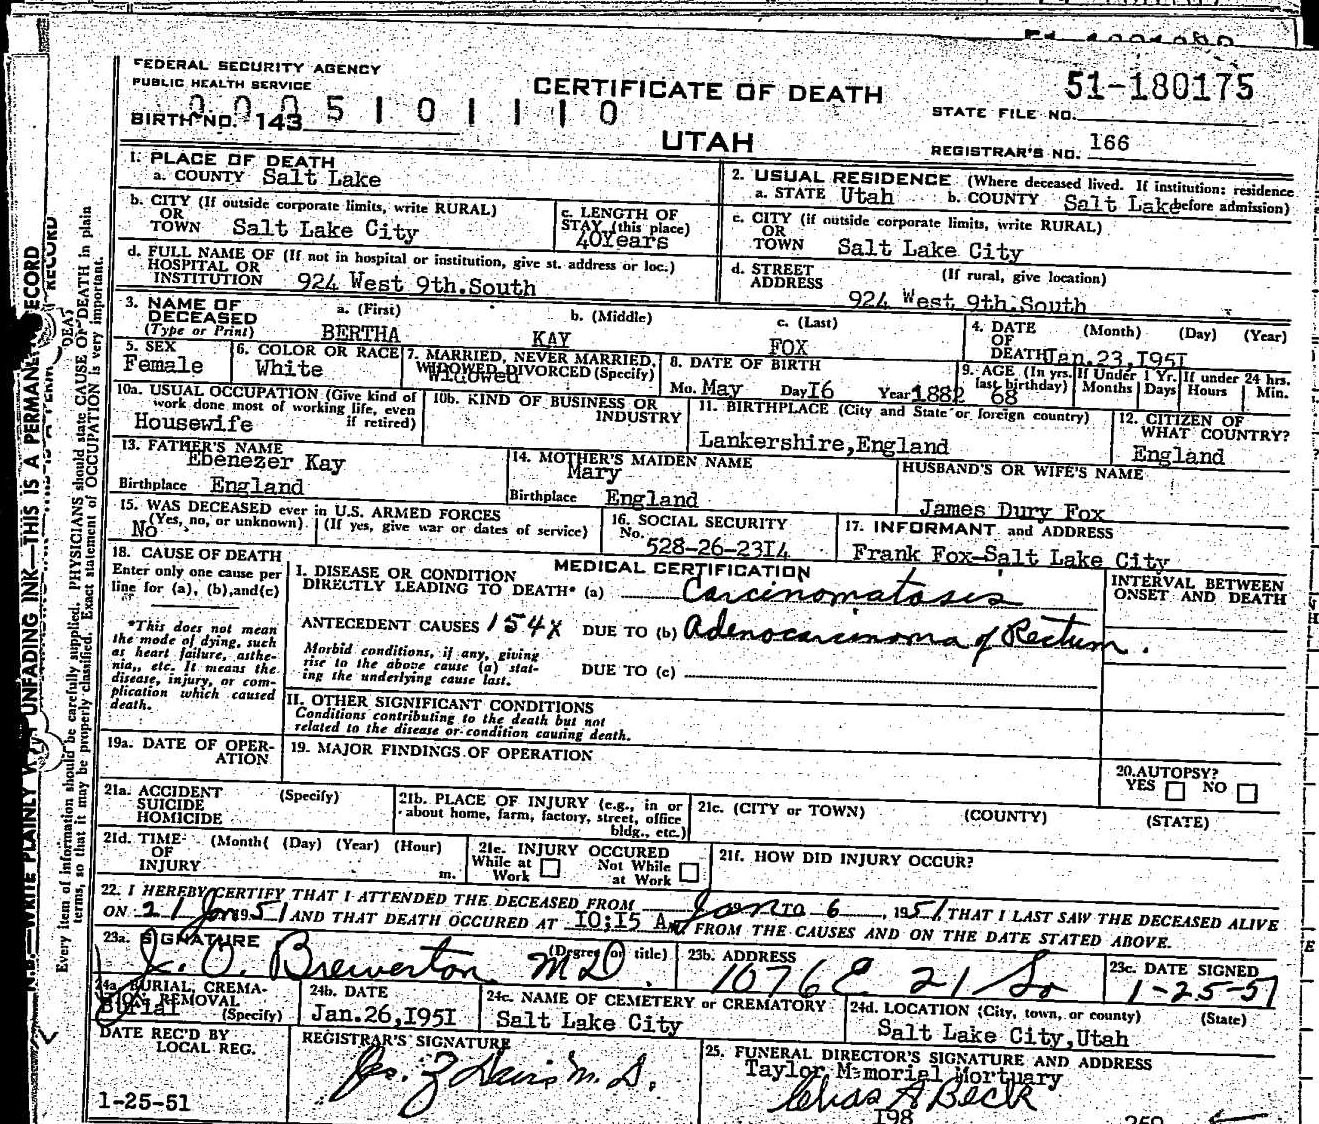 FEDERAL SECURITY AGENCY
PUBLIC HEALTH SERVICE
BIRTH NO. 143 0005101110
CERTIFICATE OF DEATH
UTAH
51-180175
STATE FILE NO.
REGISTRAR'S NO. 166
1. PLACE OF DEATH
a. COUNTY Salt Lake
2. USUAL RESIDENCE (Where deceased lived. If institution: residence
a. STATE Utah b. COUNTY Salt Lake before admission)
b. CITY (If outside corporate limits, write RURAL)
OR
TOWN Salt Lake City
c. LENGTH OF
STAY (this place)
40Years
c. CITY (if outside corporate limits, write RURAL)
OR
TOWN Salt Lake City
d. FULL NAME OF (If not in hospital or institution, give st. address or loc.)
HOSPITAL OR
INSTITUTION 924 West 9th.South
d. STREET (If rural, give location)
ADDRESS
924 West 9th.South
3. NAME OF
DECEASED
(Type or Print)
a. (First) b. (Middle) c. (Last)
BERTHA KAY FOX
4. DATE (Month) (Day) (Year)
OF
DEATH Jan.23,I95I
5. SEX
Female
6. COLOR OR RACE
White
7. MARRIED, NEVER MARRIED,
WIDOWED DIVORCED (Specify)
Widowed
8. DATE OF BIRTH
Mo. May Day I6 Year 1882
9. AGE (In yrs. last birthday) 68
If Under 1 Yr. Months Days
If under 24 hrs. Hours Min.
10a. USUAL OCCUPATION (Give kind of
work done most of working life, even
if retired)
Housewife
10b. KIND OF BUSINESS OR
INDUSTRY
11. BIRTHPLACE (City and State or foreign country)
Lankershire,England
12. CITIZEN OF
WHAT COUNTRY?
England
13. FATHER'S NAME
Ebenezer Kay
Birthplace England
14. MOTHER'S MAIDEN NAME
Mary
Birthplace England
HUSBAND'S OR WIFE'S NAME
James Dury Fox
15. WAS DECEASED ever in U.S. ARMED FORCES
(Yes, no, or unknown) (If yes, give war or dates of service)
No
16. SOCIAL SECURITY
No. 528-26-23I4
17. INFORMANT and ADDRESS
Frank Fox-Salt Lake City
18. CAUSE OF DEATH
Enter only one cause per
line for (a), (b), and (c)
*This does not mean
the mode of dying, such
as heart failure, asthe-
nia,, etc. It means the
disease, injury, or com-
plication which caused
death.
MEDICAL CERTIFICATION
I. DISEASE OR CONDITION
DIRECTLY LEADING TO DEATH* (a) Carcinomatosis
ANTECEDENT CAUSES 154X DUE TO (b) Adenocarcinoma of Rectum.
Morbid conditions, if any, giving
rise to the above cause (a) stat-
ing the underlying cause last.
DUE TO (c)
INTERVAL BETWEEN
ONSET AND DEATH
II. OTHER SIGNIFICANT CONDITIONS
Conditions contributing to the death but not
related to the disease or condition causing death.
19a. DATE OF OPER-
ATION
19. MAJOR FINDINGS OF OPERATION
20. AUTOPSY?
YES NO
21a. ACCIDENT (Specify)
SUICIDE
HOMICIDE
21b. PLACE OF INJURY (e.g., in or
about home, farm, factory, street, office
bldg., etc.)
21c. (CITY or TOWN) (COUNTY) (STATE)
21d. TIME (Month( (Day) (Year) (Hour)
OF
INJURY m.
21e. INJURY OCCURED
While at Work Not While at Work
21f. HOW DID INJURY OCCUR?
22. I HEREBY CERTIFY THAT I ATTENDED THE DECEASED FROM Jan TO 6, 1951, THAT I LAST SAW THE DECEASED ALIVE
ON 21 Jan 1951 AND THAT DEATH OCCURED AT I0;I5 A.M. FROM THE CAUSES AND ON THE DATE STATED ABOVE.
23a. SIGNATURE (Degree or title)
J. O. Brewerton MD
23b. ADDRESS
1076 E 21 So
23c. DATE SIGNED
1-25-51
24a. BURIAL, CREMA-
TION, REMOVAL
(Specify)
Burial
24b. DATE
Jan.26,I95I
24c. NAME OF CEMETERY or CREMATORY
Salt Lake City
24d. LOCATION (City, town, or county) (State)
Salt Lake City,Utah
DATE REC'D BY
LOCAL REG.
1-25-51
REGISTRAR'S SIGNATURE
Jos. Z Davis M.D.
25. FUNERAL DIRECTOR'S SIGNATURE AND ADDRESS
Taylor Memorial Mortuary
Chas A Beck
I98
N.B.—WRITE PLAINLY UNFADING INK—THIS IS A PERMANENT RECORD
Every item of information should be carefully supplied. PHYSICIANS should state CAUSE OF DEATH in plain
terms, so that it may be properly classified. Exact statement of OCCUPATION is very important.